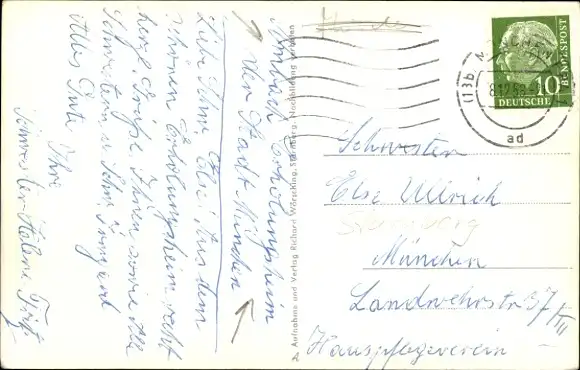 Ambach Erholungsheim
der Stadt München
Liebe Schw. Else! Aus dem
schönen Erholungsheim recht
herzl. Grüße. Ihnen sowie alle
Schwestern u. Schw. Irmgard
Alles Gute Ihre
Schwester Helene
Aufnahme und Verlag Richard Wörsching, Starnberg. Nachbildung verboten
(13b) MÜNCHEN
8.12.58
ad
10
DEUTSCHE
BUNDESPOST
Schwester
Else Ullrich
Starnberg
München
Landwehrstr 37/III
Hauspflegeverein